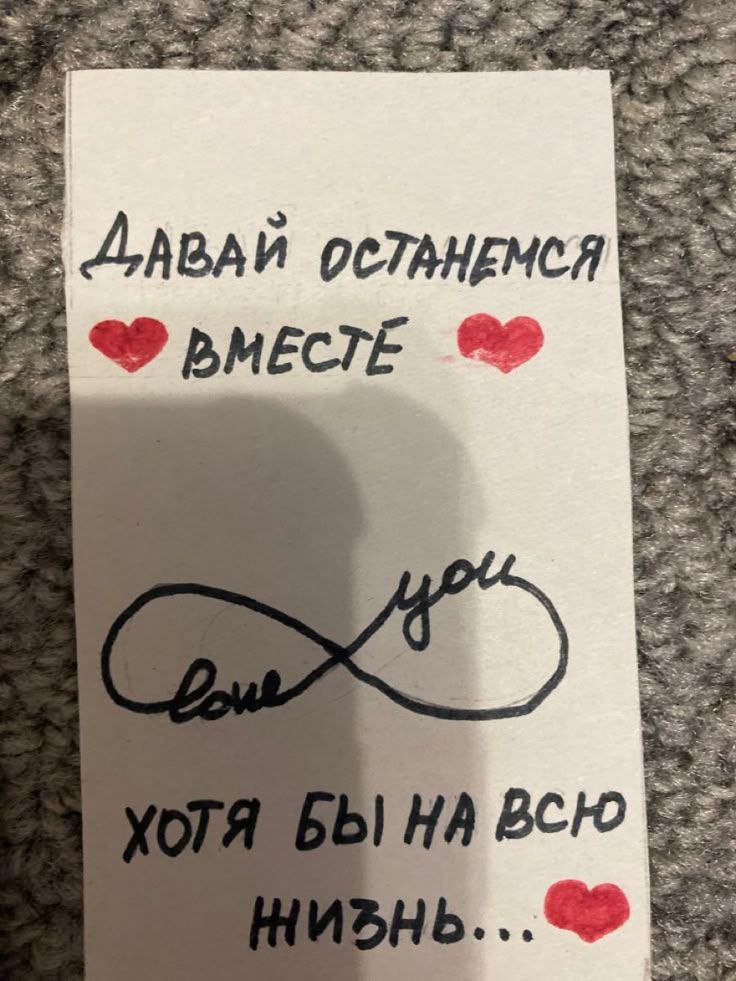 ДАВАЙ ОСТАНЕМСЯ
ВМЕСТЕ
you
love
ХОТЯ БЫ НА ВСЮ
ЖИЗНЬ...